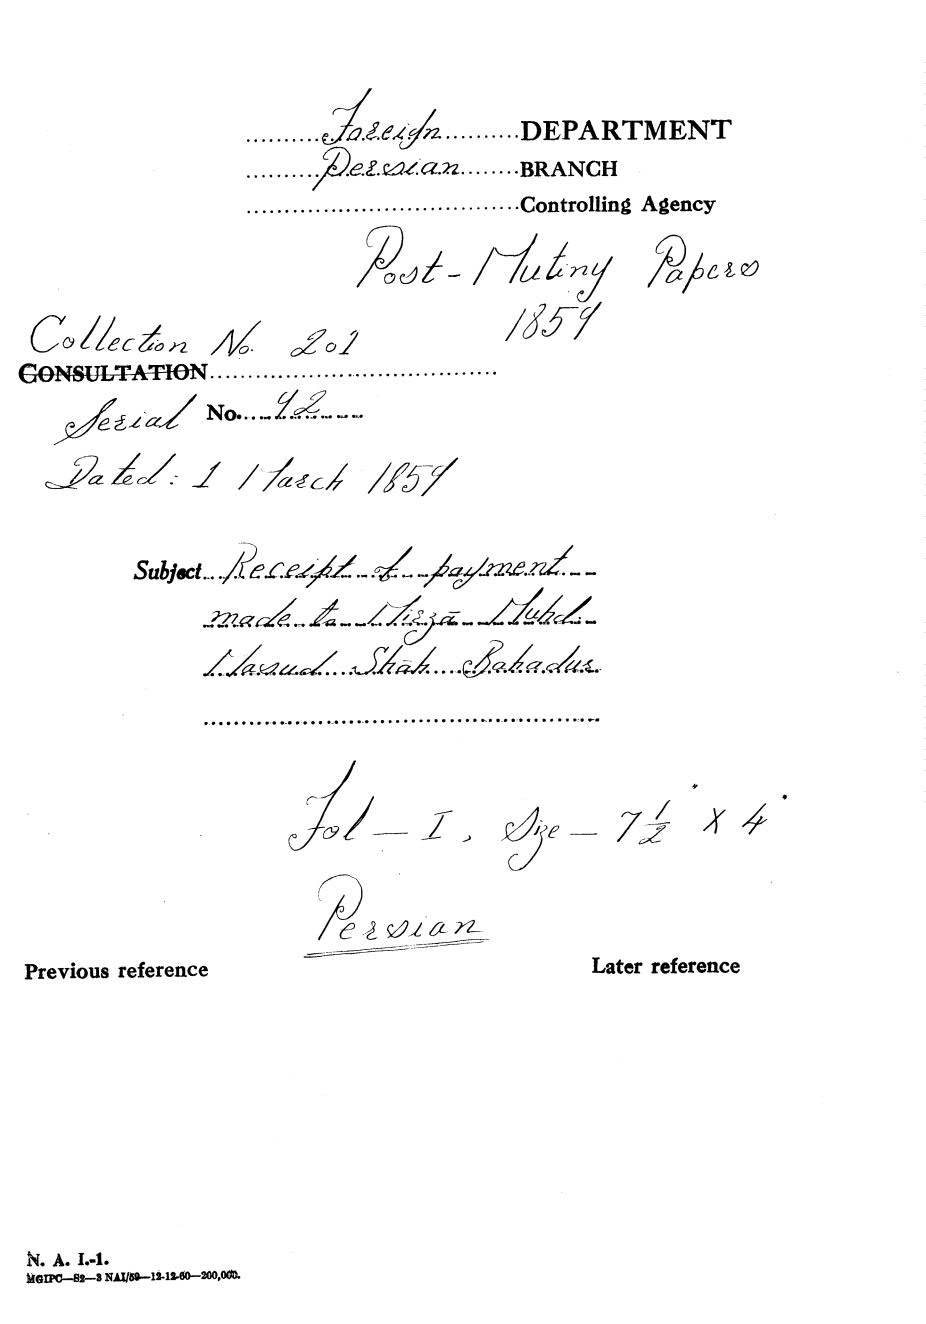 Foreign DEPARTMENT
Persian BRANCH
Controlling Agency
Post-Mutiny Papers
1859
Collection No. 201
CONSULTATION
Serial No. 92
Dated: 1 March 1859
Subject Receipt of payment
made to Mirzā Muhd.
Masud Shāh Bahadur
Fol - I, Size - 7 1/2" X 4"
Persian
Previous reference
Later reference
N. A. I.-1.
MGIPC—S2—3 NAI/59—12-12-60—200,000.